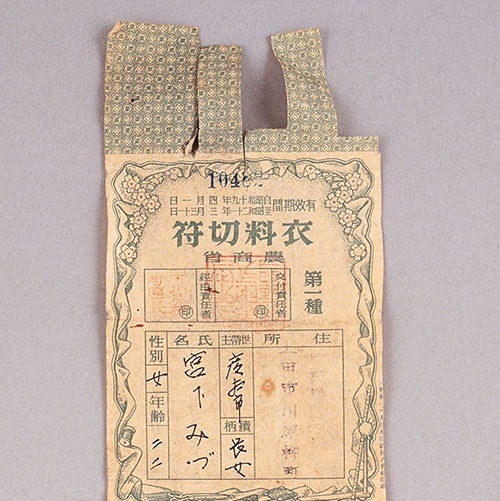 1048
有効期間
自昭和十九年四月一日
至昭和二十一年三月三十一日
衣料切符
農商省
第一種
交付責任者
印
経由責任者
印
住所
田市川原柳町
世帯主
続柄
長女
氏名
宮下みづ
性別
女
年齢
二二